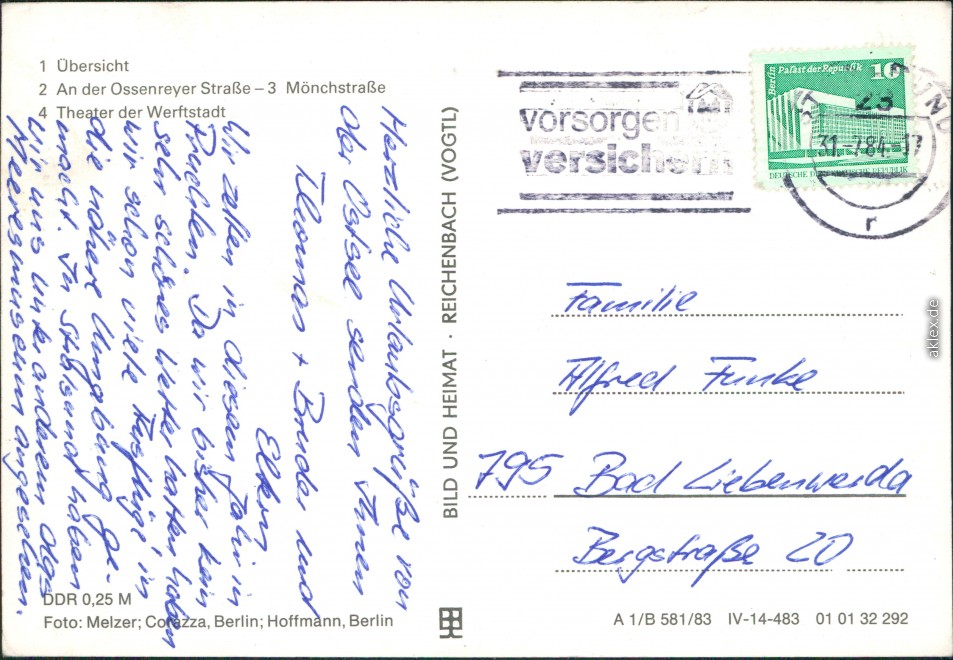 1 Übersicht
2 An der Ossenreyer Straße – 3 Mönchstraße
4 Theater der Werftstadt
Herzliche Urlaubsgrüße von
der Ostsee senden Ihnen
Thomas + und
Eltern
Wir zelten in diesem Jahr in
Da wir bisher kein
sehr schönes Wetter hatten haben
wir schon viele Ausflüge in
die nähere Umgebung ge-
macht. In Stralsund haben
wir uns unter anderem das
Meeresmuseum angesehen.
DDR 0,25 M
Foto: Melzer; Corazza, Berlin; Hoffmann, Berlin
BILD UND HEIMAT · REICHENBACH (VOGTL)
vorsorgen
versichern
Berlin Palast der Republik 10
DEUTSCHE DEMOKRATISCHE REPUBLIK
23
31.-7.84.-17
r
Familie
Alfred Funke
795 Bad Liebenwerda
Bergstraße 20
A 1/B 581/83 IV-14-483 01 01 32 292
aklex.de